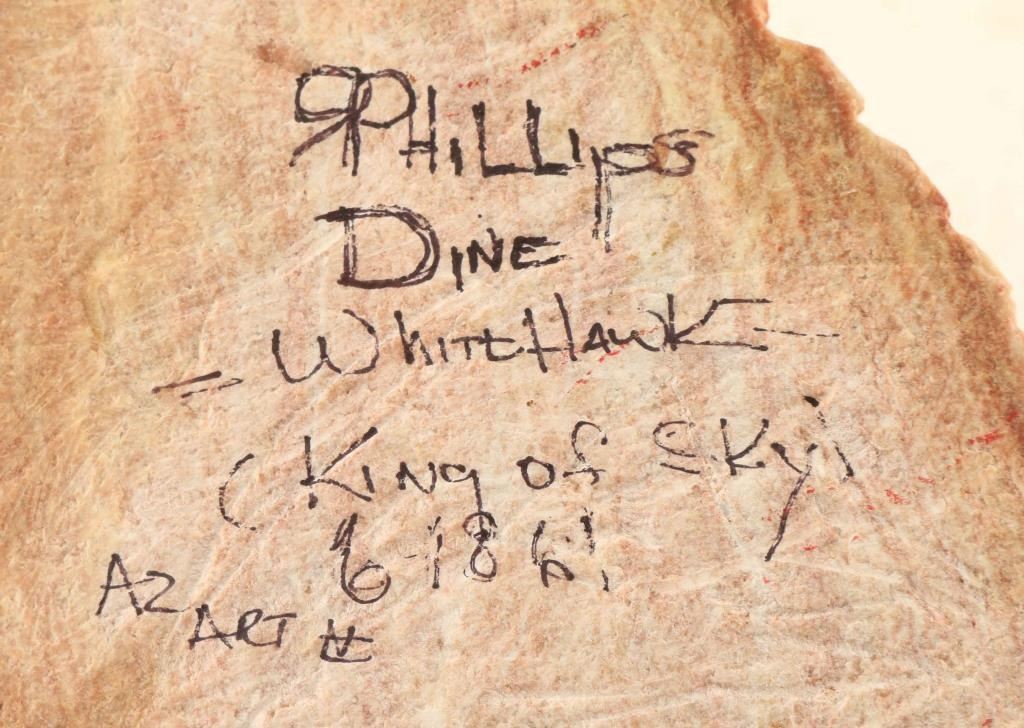 PHILLIPS
DINE
- WHITE HAWK -
(KING of SKY)
6-18
AZ
ART #